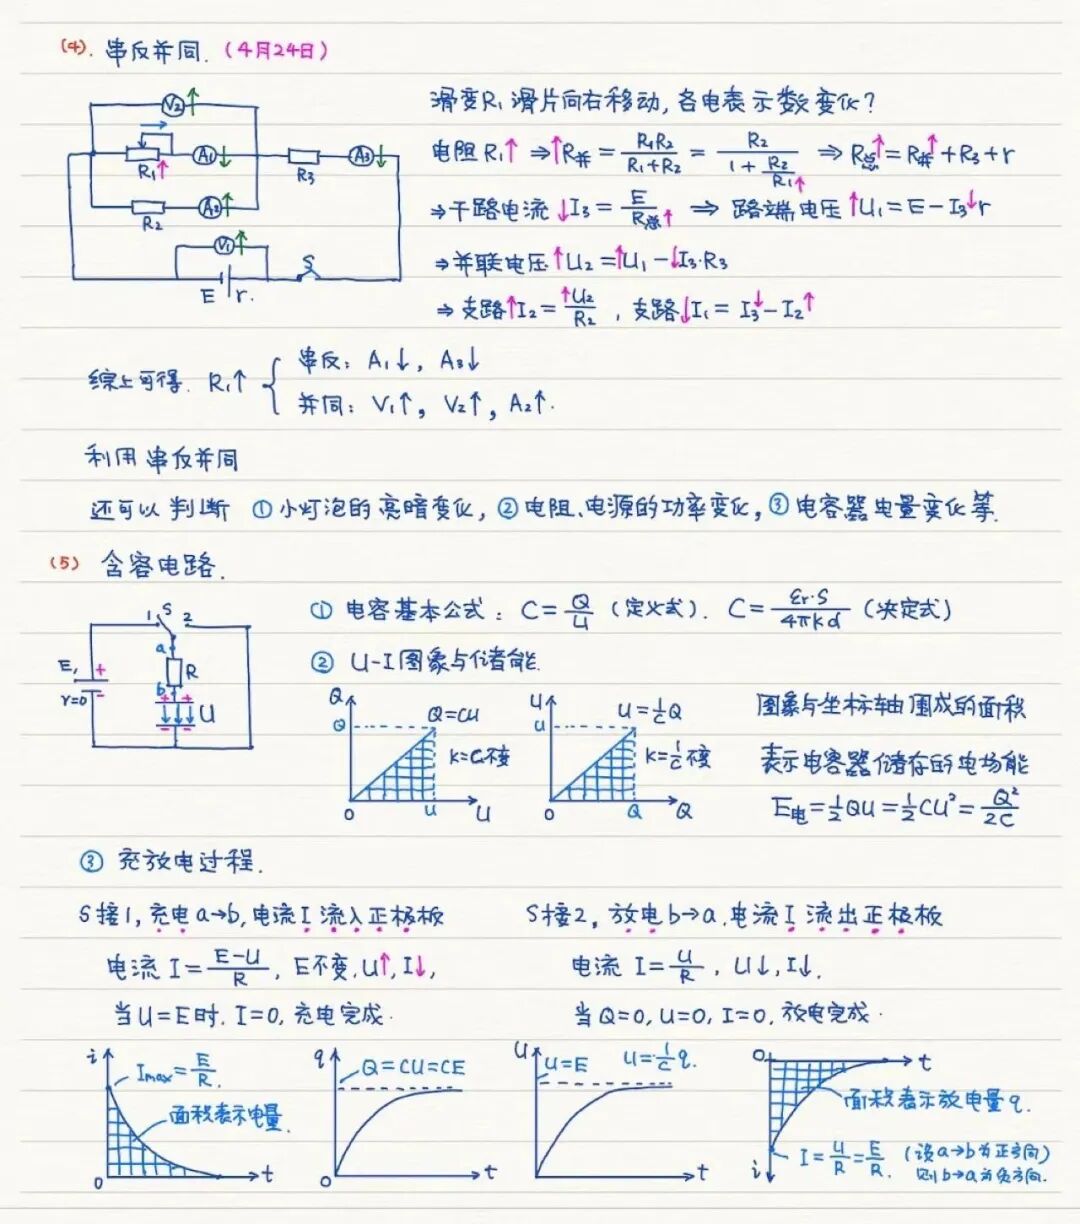 (4). 串反并同. (4月24日)
滑变R₁滑片向右移动, 各电表示数变化?
V₂↑
R₁↑ A₁↓ R₃ A₃↓
R₂ A₂↑
V₁↑
E r. S
电阻R₁↑ ⇒ ↑R并 = R₁R₂/(R₁+R₂) = R₂/(1+R₂/R₁↑) ⇒ R总↑ = R并↑+R₃+r
⇒ 干路电流 ↓I₃ = E/R总↑ ⇒ 路端电压 ↑U₁ = E-I₃↓r
⇒ 并联电压 ↑U₂ = ↑U₁-↓I₃·R₃
⇒ 支路↑I₂ = ↑U₂/R₂ , 支路↓I₁ = I₃↓-I₂↑
综上可得. R₁↑ { 串反: A₁↓, A₃↓
并同: V₁↑, V₂↑, A₂↑.
利用串反并同
还可以判断 ①小灯泡的亮暗变化, ②电阻、电源的功率变化, ③电容器电量变化等.
(5) 含容电路.
1 S 2
a
E, + R
r=0 - b
+ + + U
- - -
① 电容基本公式: C=Q/U (定义式). C=εr·S/4πkd (决定式)
② U-I图象与储能.
Q Q Q=CU k=C不变 0 U U
U U U=1/C Q k=1/C不变 0 Q Q
图象与坐标轴围成的面积
表示电容器储存的电场能
E电=½QU=½CU²=Q²/2C
③ 充放电过程.
S接1, 充电a→b, 电流I 流入正极板
电流 I=(E-U)/R, E不变, U↑, I↓,
当U=E时. I=0, 充电完成.
S接2, 放电b→a. 电流I 流出正极板
电流 I=U/R, U↓, I↓.
当Q=0, U=0, I=0, 放电完成.
i Imax=E/R. 面积表示电量. 0 t
q Q=CU=CE 0 t
U U=E U=1/C q. t
0 t 面积表示放电量q.
i I=U/R=E/R. (设a→b为正方向)
则b→a为负方向.